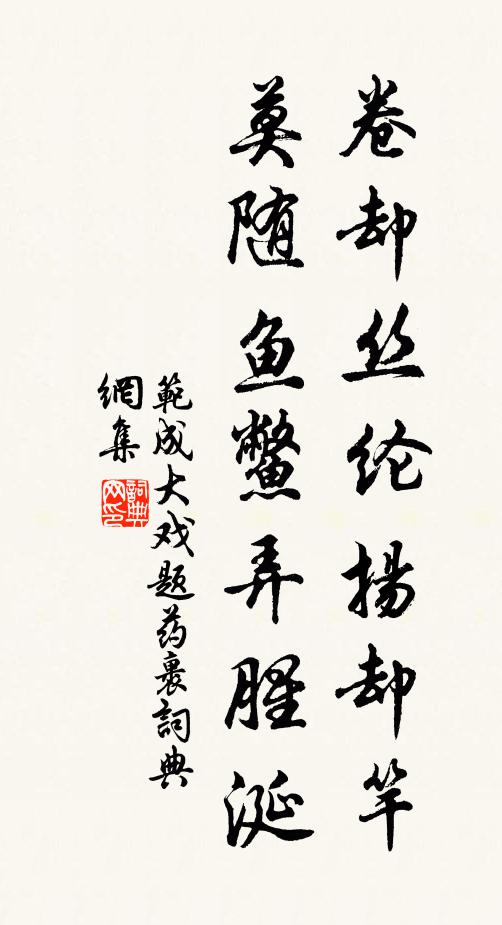 卷却丝纶揚却竿
莫随鱼鳖弄腥涎
範成大戏题药裹詞典
網集
詞典网印